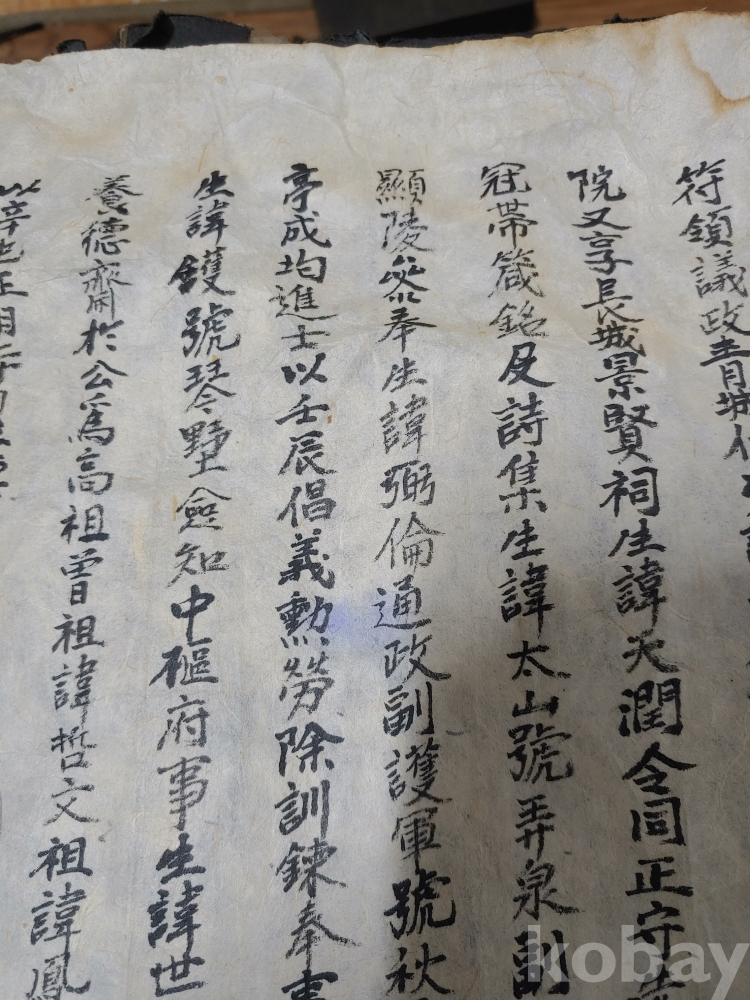 符領議政青城伯
院又享長城景賢祠生諱天潤令同正守
冠帶箴銘及詩集生諱太山號弄泉副
顯陵參奉生諱弼倫通政副護軍號秋
亭成均進士以壬辰倡義勲勞除訓鍊奉事
生諱鑊號琴墅僉知中樞府事生諱世
養德齋於公爲高祖曾祖諱哲文祖諱鳳
以辛巳正月
kobay